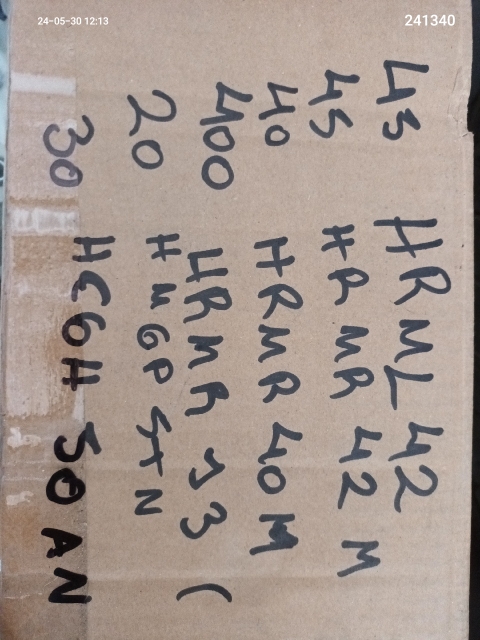 24-05-30 12:13
241340
45 HRML 42
45 HRMR 42 M
40 HRMR 40 M
400 HRMR 33 (
20 HMGP 5TN
30 HCGH 50AN